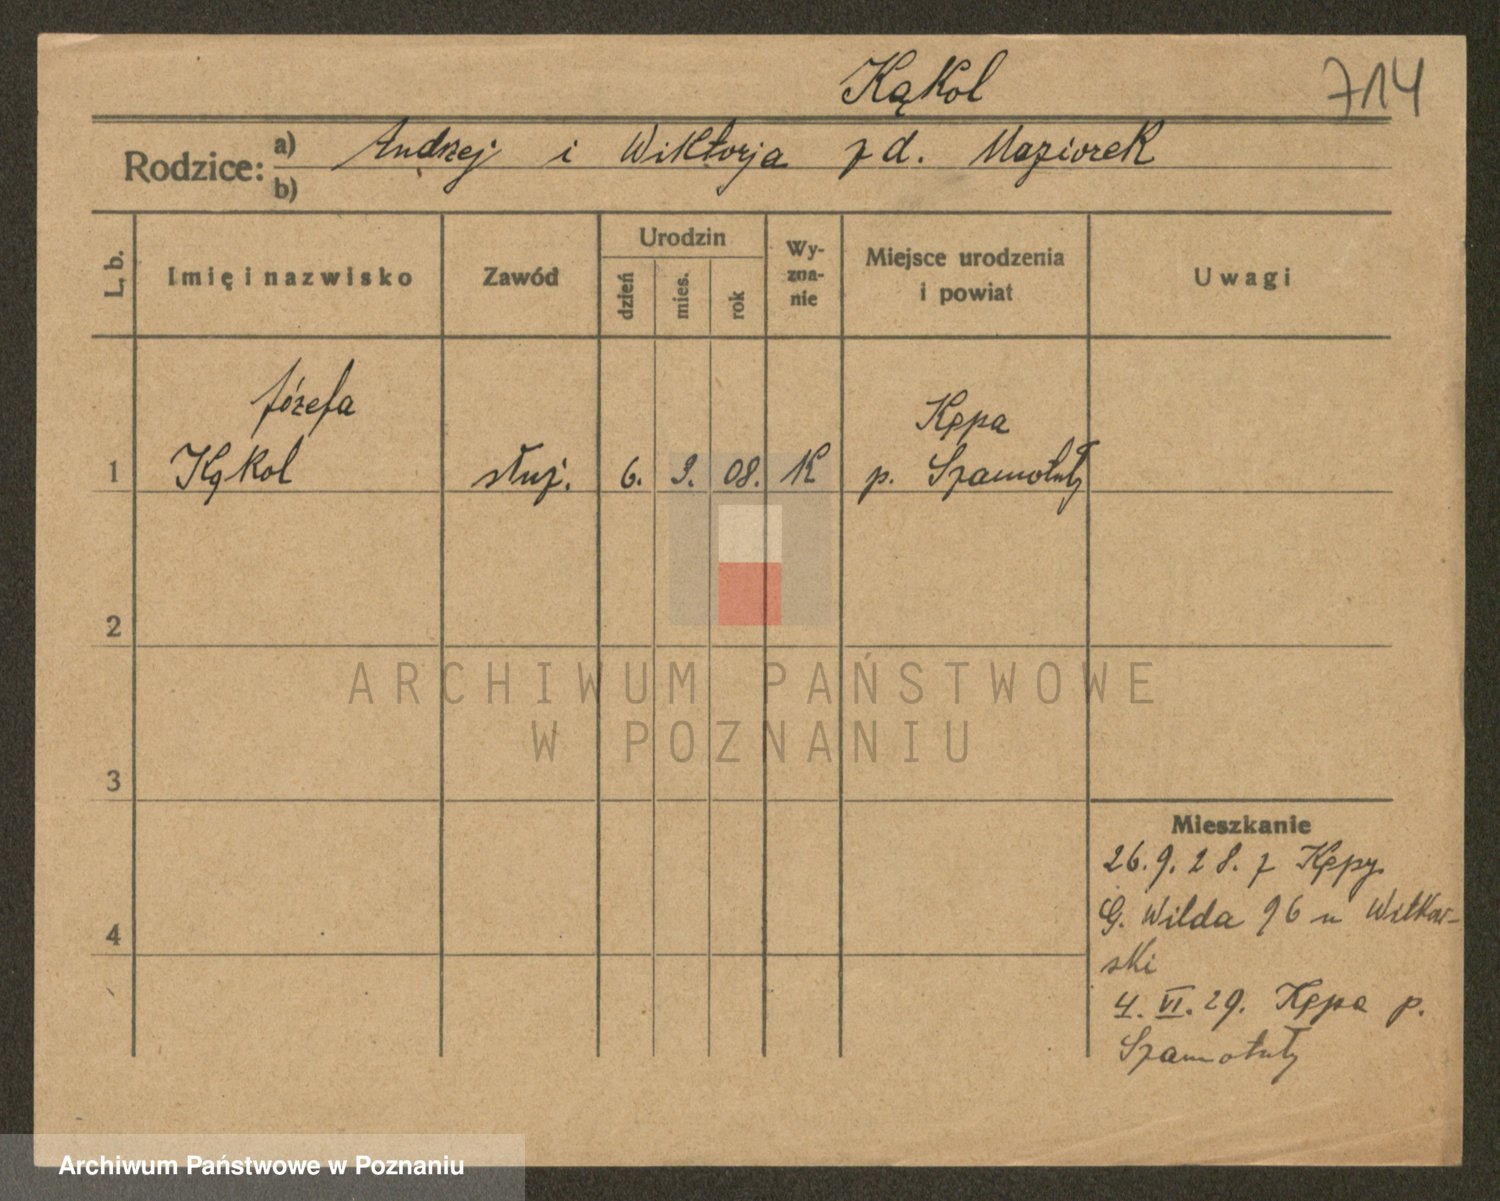 Kąkol
714
Rodzice: a) Andrzej i Wiktorja z d. Maziorek
b)
L. b.
Imię i nazwisko
Zawód
Urodzin
dzień
mies.
rok
Wy-
zna-
nie
Miejsce urodzenia
i powiat
Uwagi
Józefa
Kępa
1 Kąkol służ. 6. 3. 08. K p. Szamotuły
2
ARCHIWUM PAŃSTWOWE
W POZNANIU
3
Mieszkanie
26.9.28. z Kępy
4
G. Wilda 96 u Witkow-
ski
4. VI. 29. Kępa p.
Szamotuły
Archiwum Państwowe w Poznaniu